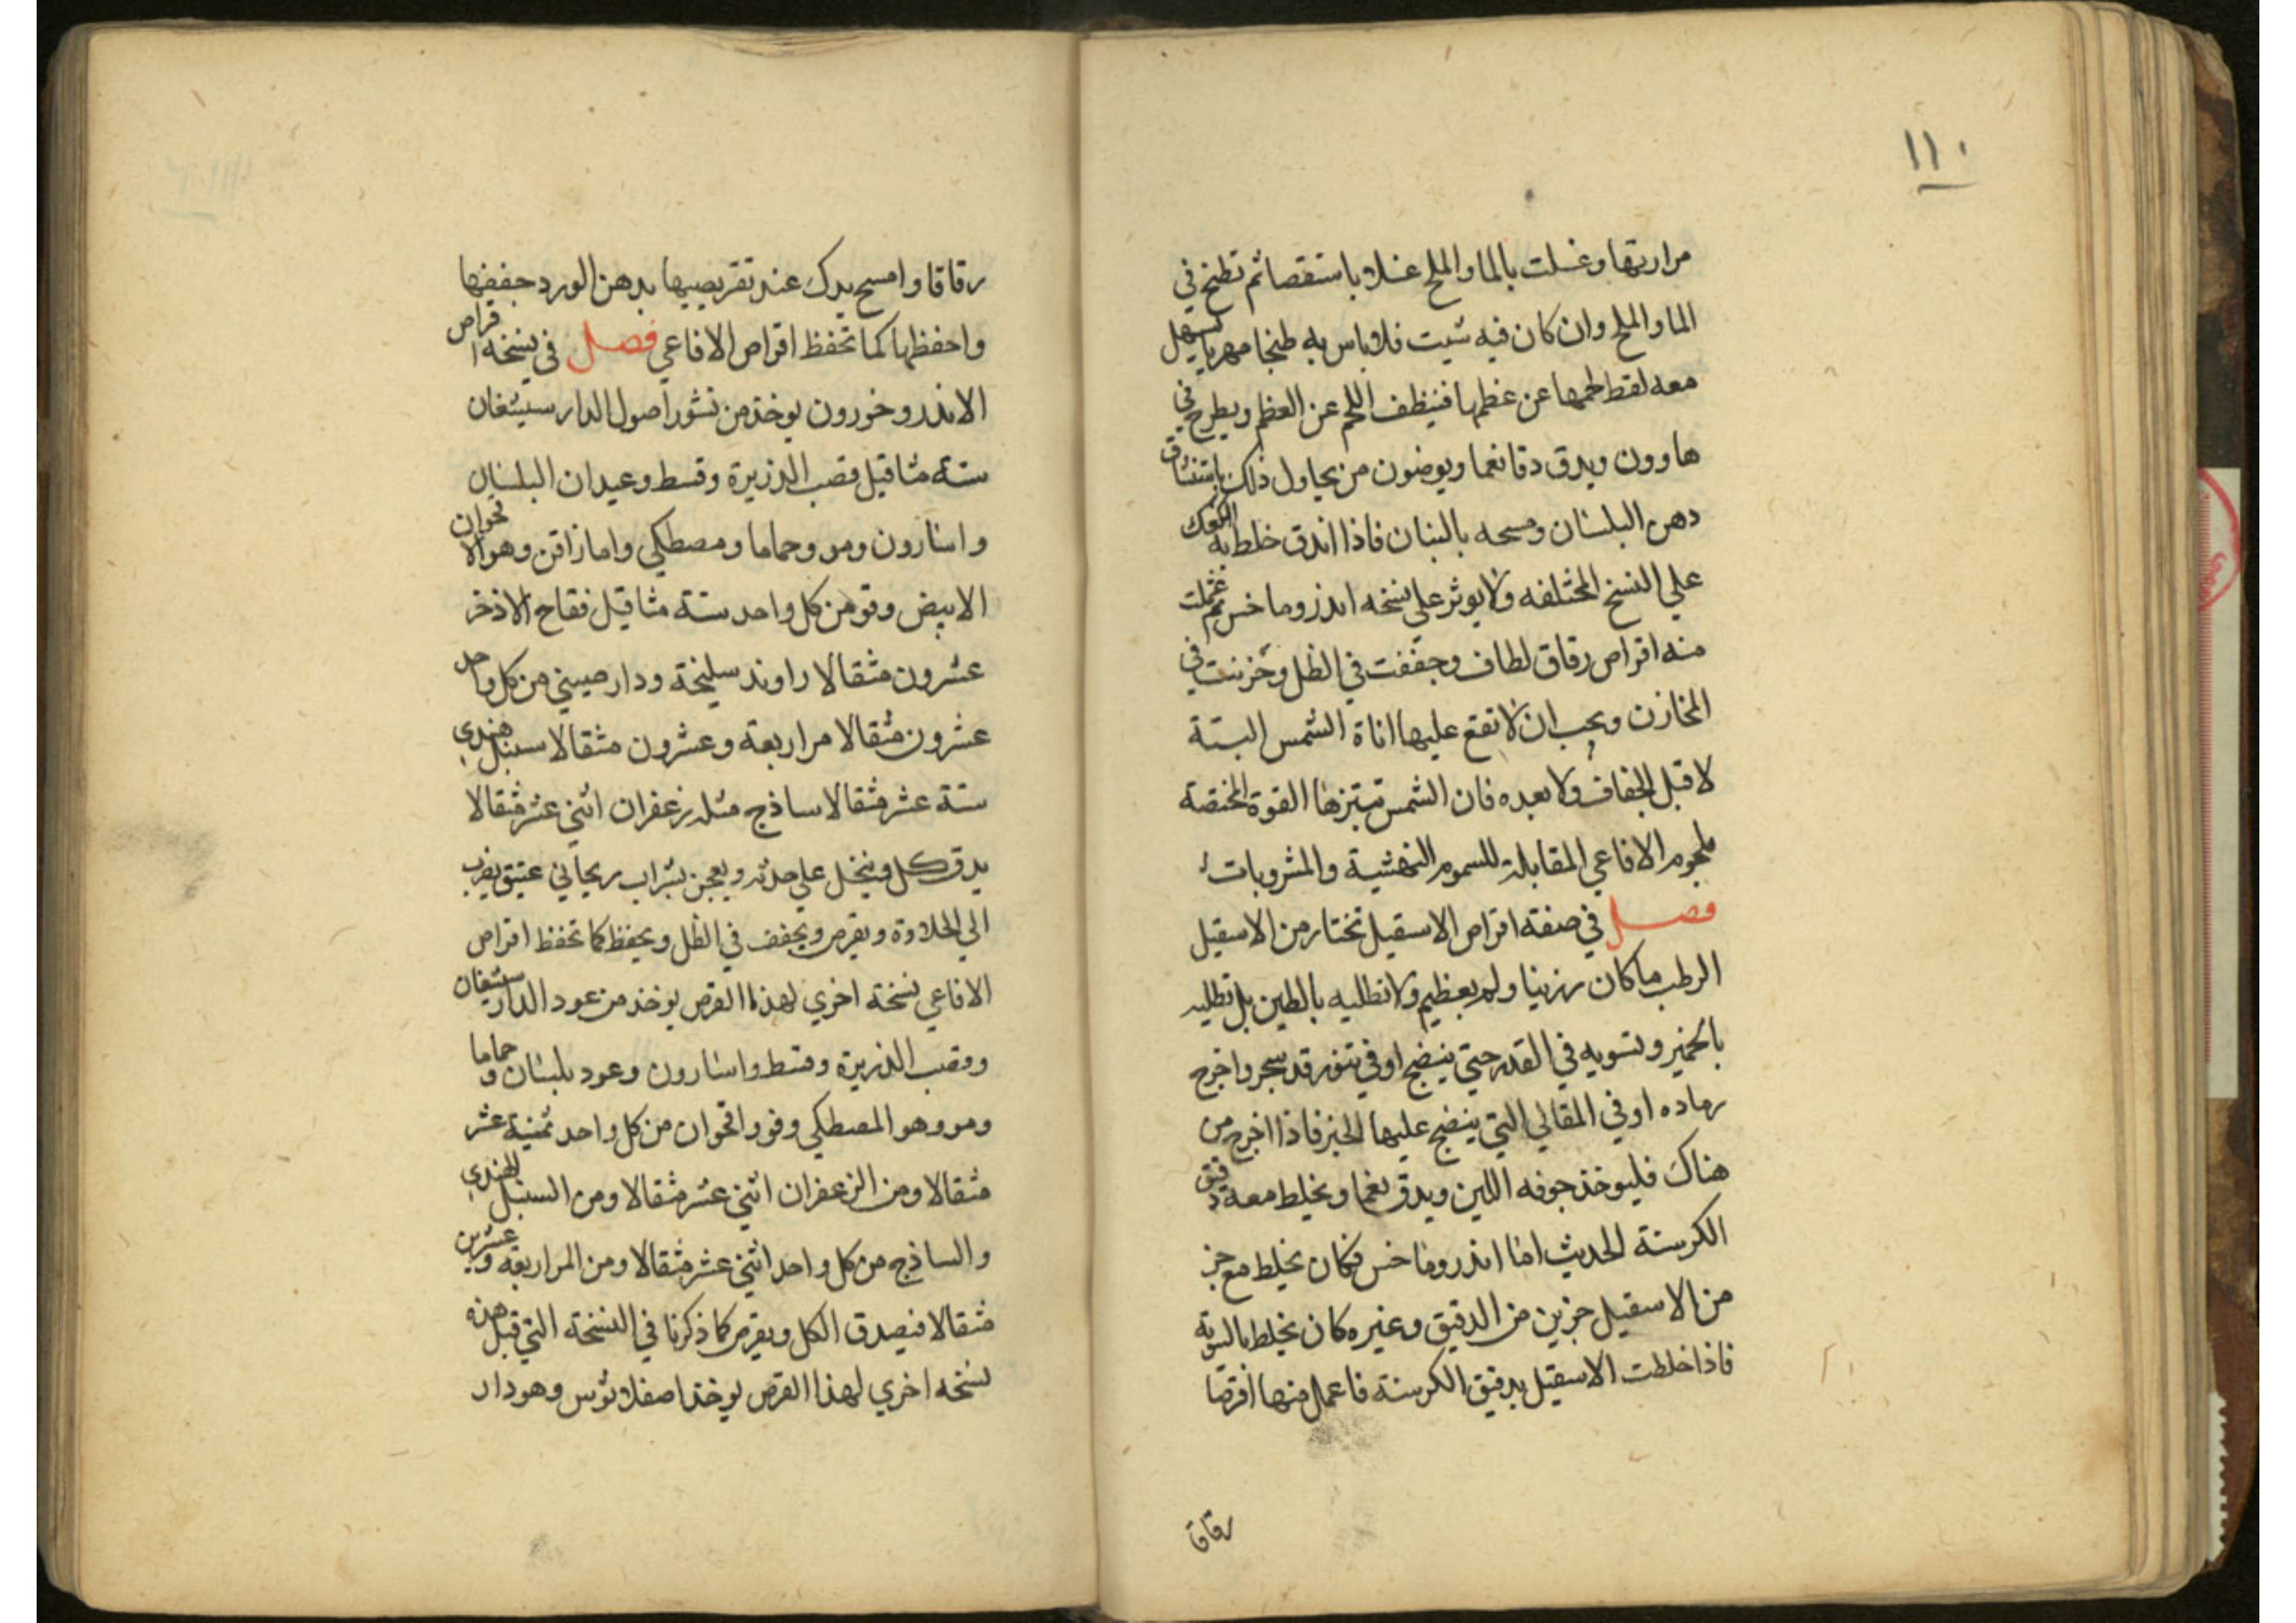 ١١٠
مرارتها وغسلت بالما والملح غسلا باستقصا ثم تطبخ في
الما والملح وان كان فيه شبت فلا باس به طبخا مهريا يسهل
معه لقط لحمها عن عظمها فينظف اللحم عن العظم ويطرح في
هاوون ويدق دقا نعما ويوضون من يحاول ذلك باستنشاق
دهن البلسان ومسحه بالبنان فاذا اندق خلط به الكعك
علي النسخ المختلفه ولا يوثر علي نسخه اندروماخس ثم عملت
منه اقراص رقاق لطاف وجففت في الظل وخزنت في
المخازن ويجب ان لا تقع عليها اناة الشمس البتة
لا قبل الجفاف ولا بعده فان الشمس تبتزها القوة المختصة
بلحوم الافاعي المقابلة للسموم النهشية والمشروبات
فصل في صفته اقراص الاسقيل تختار من الاسقيل
الرطب ما كان رزينا ولم يعظيم ولا تطليه بالطين بل تطليه
بالخمير وتشويه في القدر حتي ينضج او في تنور قد سجر واخرج
رماده او في المقالي التي ينضج عليها الخبز فاذا اخرج من
هناك فليوخذ جوفه اللين ويدق نعما ويخلط معه دقيق
الكرسنة الحديث اما اندروماخس فكان يخلط مع جز
من الاسقيل جزين من الدقيق وغيره كان يخلط بالسوية
فاذا خلطت الاسقيل بدقيق الكرسنة فاعمل منها اقرصا
رقاق
رقاقا وامسح يدك عند تقريصيها بدهن الورد جففها
واحفظها كما تحفظ اقراص الافاعي فصل في نسخه اقراص
الاندروخورون يوخذ من قشور اصول الدار سيشغان
ستة مثاقيل قصب الذريرة وقسط وعيدان البلسان
واسارون ومو وحماما ومصطكي وامارافن وهو الاقحوان
الابيض وفو من كل واحد ستة مثاقيل فقاح الاذخر
عشرون مثقالا راوند سليخة ودارصيني من كل واحد
عشرون مثقالا مر اربعة وعشرون مثقالا سنبل هندي
ستة عشر مثقالا ساذج مثله زعفران اثني عشر مثقالا
يدق كل وينخل علي حدته ويعجن بشراب ريحاني عتيق يضرب
الي الحلاوة ويقرص ويجفف في الظل ويحفظ كما تحفظ اقراص
الافاعي نسخة اخري لهذا القرص يوخذ من عود الدار سيشغان
وقصب الذريرة وقسط واسارون وعود بلسان وحماما
ومو وهو المصطكي وفو واقحوان من كل واحد ثمنية عشر
مثقالا ومن الزعفران اثني عشر مثقالا ومن السنبل الهندي
والساذج من كل واحد اثني عشر مثقالا ومن المر اربعة وعشرين
مثقالا فيصدق الكل ويقرص كما ذكرنا في النسخة التي قبل هذه
نسخه اخري لهذا القرص يوخذ اصفلاثوس وهو دار